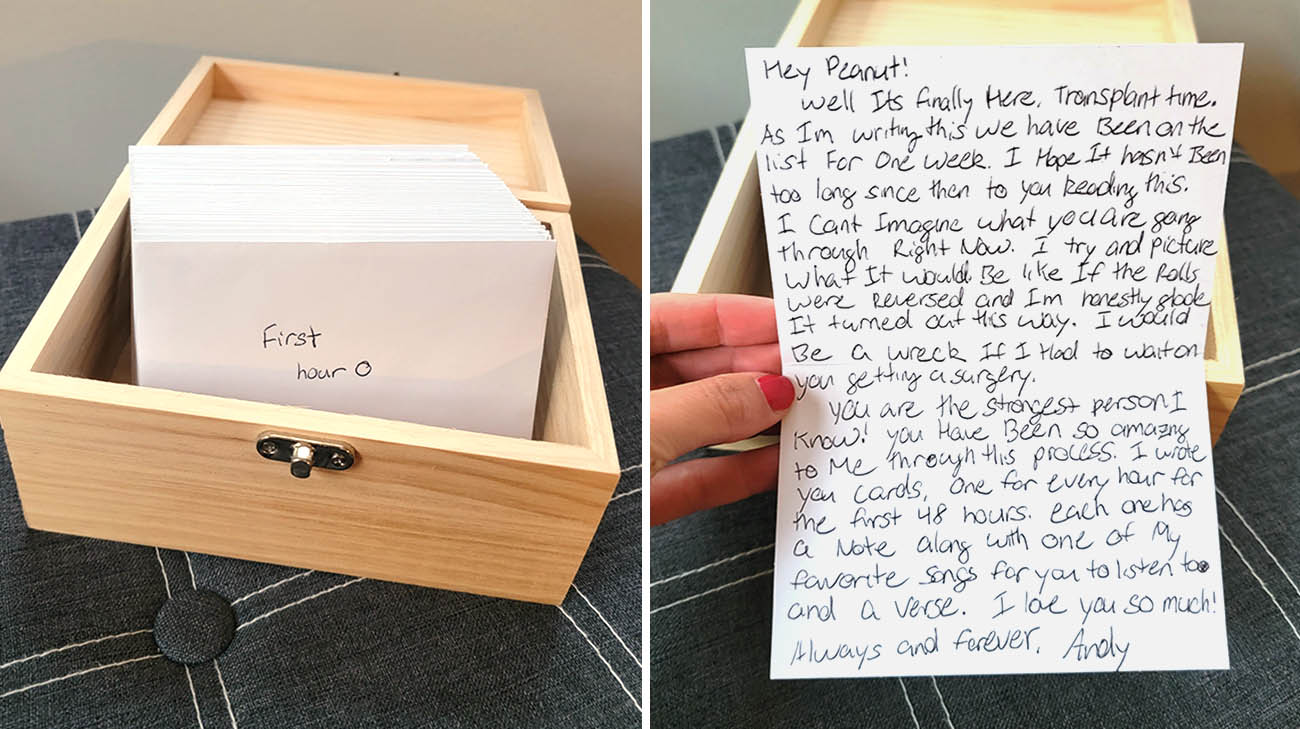 First
hour 0
Hey Peanut!
Well Its finally Here. Transplant time.
As Im writing this we have Been on the
list For One week. I Hope It hasn't Been
too long since then to you Reading this.
I Cant Imagine what you are going
through Right Now. I try and picture
What It would Be like If the Rolls
were Reversed and Im honestly glade
It turned out this way. I would
Be a wreck If I Had to wait on
you getting a surgery.
you are the strongest person I
Know! you Have Been so amazing
to Me through this process. I wrote
you cards, One for every hour for
the first 48 hours. each one has
a Note along with one of My
favorite songs for you to listen too
and a verse. I love you so much!
Always and forever, Andy